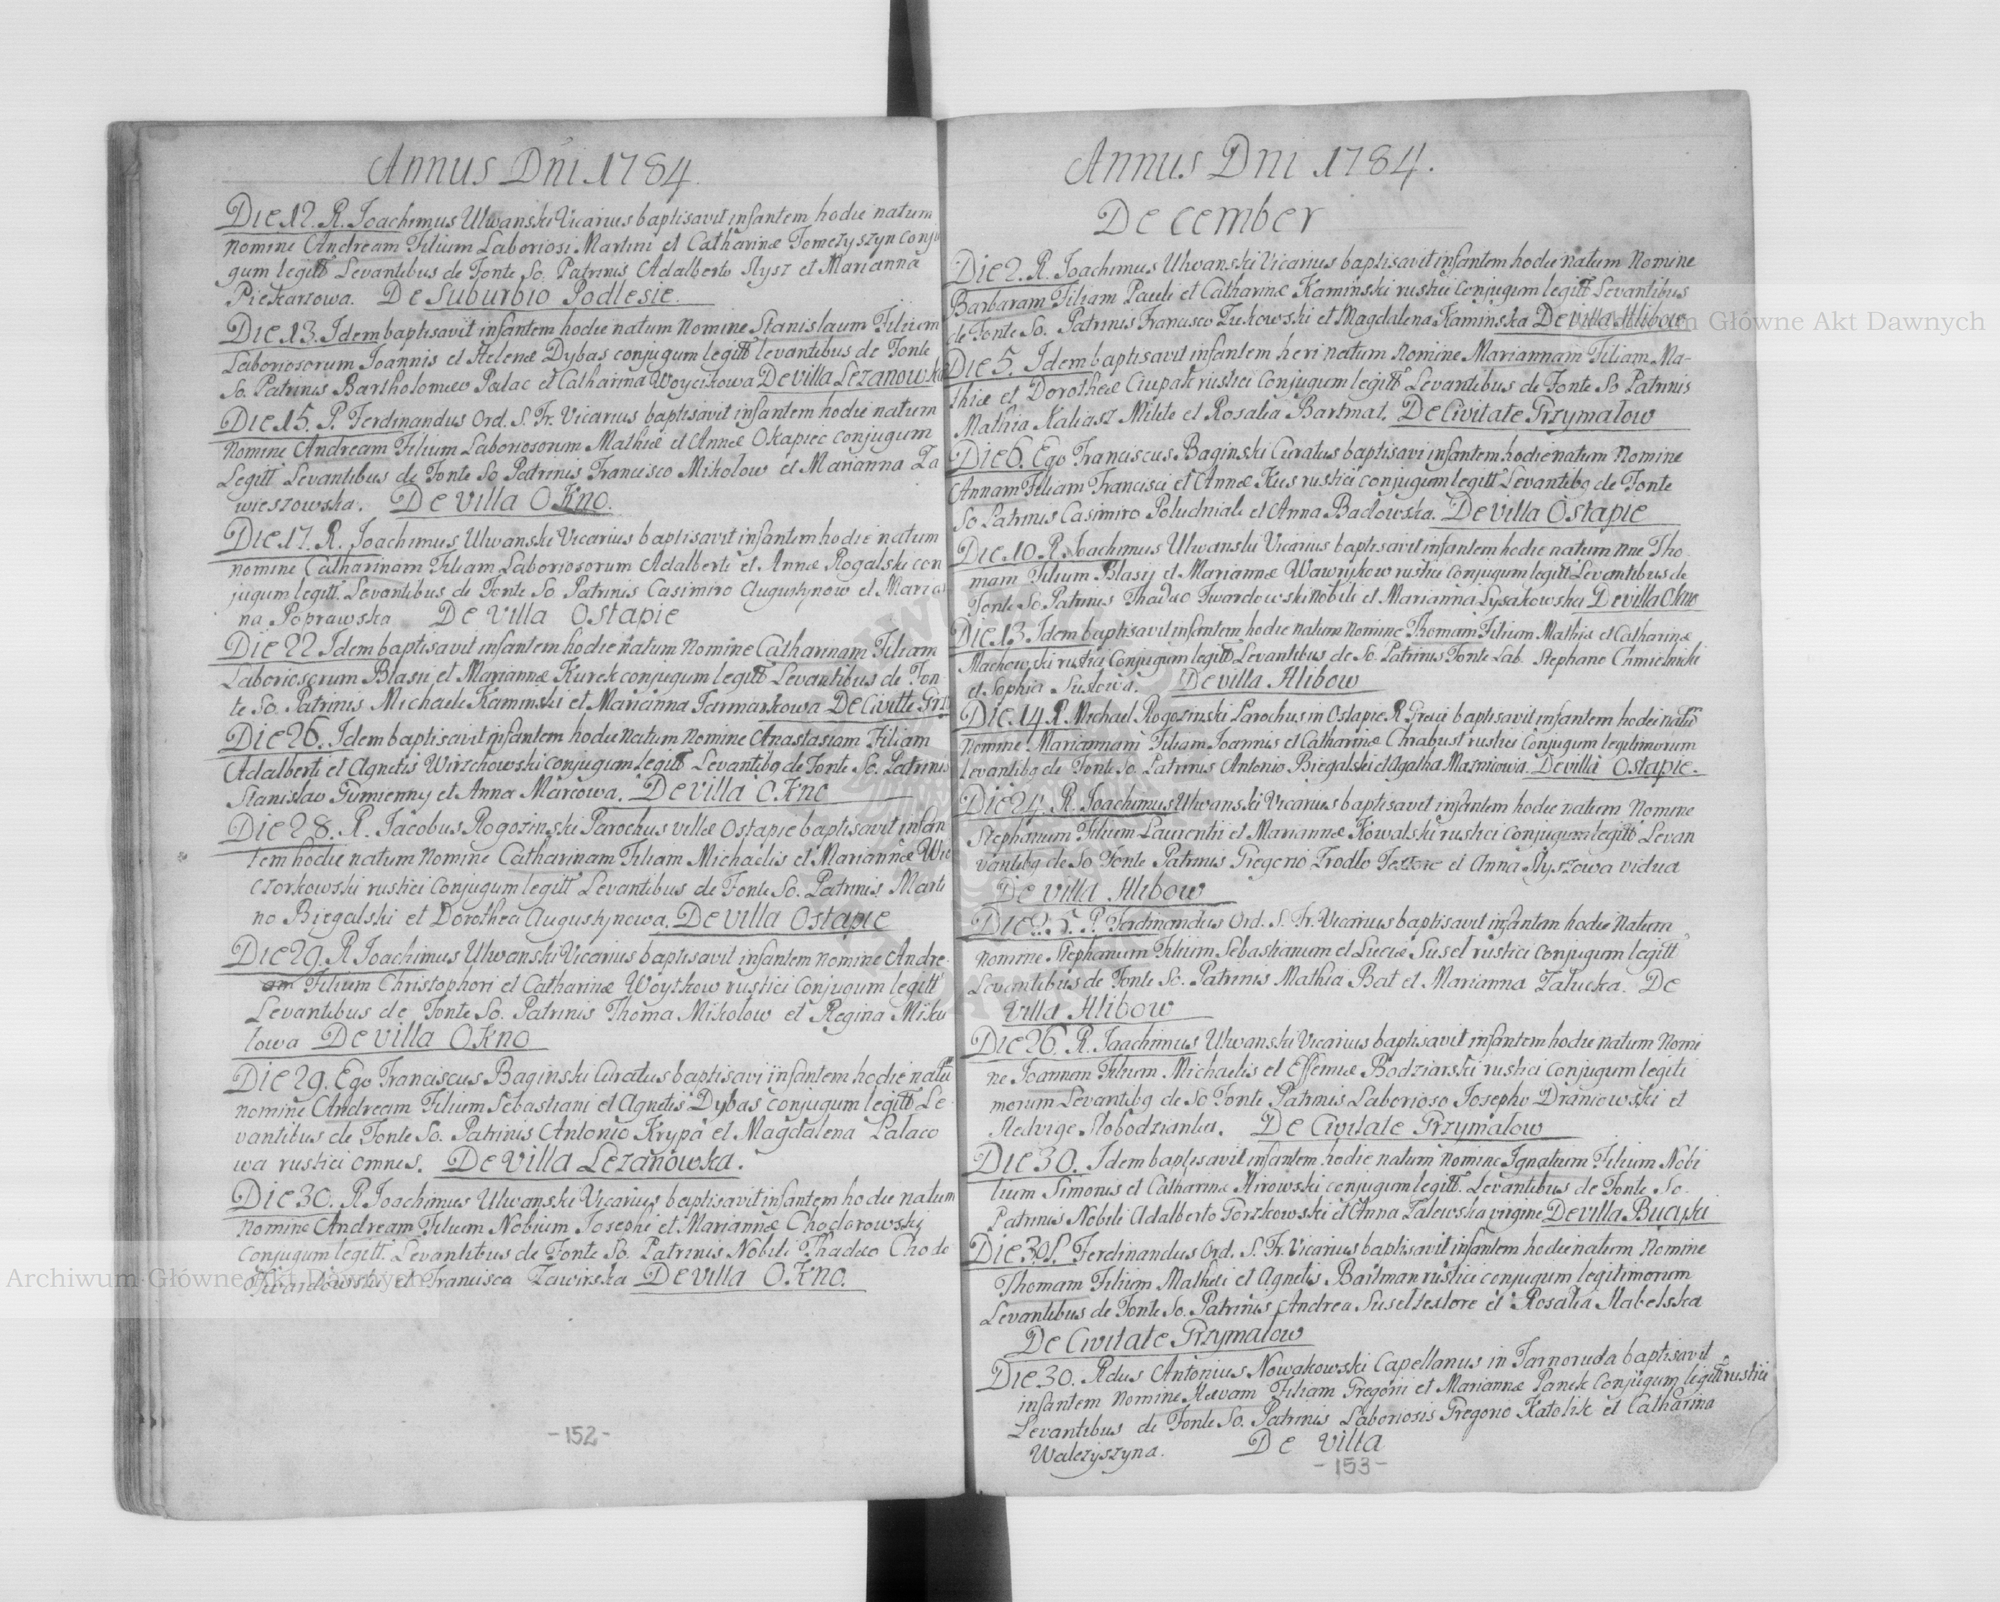 Annus Dni 1784.
Die 12. R. Joachimus Ulwanski Vicarius baptisavit infantem hodie natum
nomine Andream Filium Laboriosi Martini et Catharinæ Tomczyszyn conju
gum legitt. Levantibus de Fonte So. Patrinis Adalberto Slysz et Marianna
Piekarzowa. De Suburbio Podlesie.
Die 13. Idem baptisavit infantem hodie natum nomine Stanislaum Filium
Laboriosorum Joannis et Helenæ Dybas conjugum legitt levantibus de Fonte
So. Patrinis Bartholomæo Palac et Catharina Woycikowa De villa Lezanowka
Die 15. P. Ferdinandus Ord. S. Fr. Vicarius baptisavit infantem hodie natum
Nomine Andream Filium Laboriosorum Mathiæ et Annæ Okapiec conjugum
Legitt. Levantibus de Fonte So Patrinis Francisco Mikolow et Marianna Za
wieszowska. De villa Okno.
Die 17. R. Joachimus Ulwanski Vicarius baptisavit infantem hodie natum
nomine Catharinam Filiam Laboriosorum Adalberti et Annæ Rogalski con
jugum legitt. Levantibus de Fonte So Patrinis Casimiro Augustynow et Maria
na Poprawska De Villa Ostapie
Die 22 Idem baptisavit infantem hodie natum nomine Catharinam Filiam
Laboriosorum Blasii et Mariannæ Kurek conjugum legitt Levantibus de Fon
te So. Patrinis Michaele Kaminski et Marianna Jarmarkowa De Civitte Grz
Die 26. Idem baptisavit infantem hodie natum nomine Anastasiam Filiam
Adalberti et Agnetis Wirzchowski conjugum Legitt Levantibq de Fonte So. Patrinis
Stanislao Gumienny et Anna Marcowa. De villa Okno
Die 28. R. Jacobus Rogozinski Parochus villæ Ostapie baptisavit infan
tem hodie natum nomine Catharinam Filiam Michaelis et Mariannæ Wie
czorkowski rustici Conjugum legitt Levantibus de Fonte So. Patrinis Marti
no Biegalski et Dorothea Augustynowa. De villa Ostapie
Die 29. R Joachimus Ulwanski Vicarius baptisavit infantem nomine Andre
am Filium Christophori et Catharinæ Woytkow rustici Conjugum legitt
Levantibus de Fonte So. Patrinis Thoma Mikolow et Regina Miku
lowa De villa Okno
Die 29. Ego Franciscus Baginski Curatus baptisavi infantem hodie natu
nomine Andream Filium Sebastiani et Agnetis Dybas conjugum legitt Le
vantibus de Fonte So. Patrinis Antonio Krypa et Magdalena Palaco
wa rustici omnes. De villa Lezanowka.
Die 30. R. Joachimus Ulwanski Vicarius baptisavit infantem hodie natum
Nomine Andream Filium Nobium Josephi et Mariannæ Chodorowski
Conjugum legitt. Levantibus de Fonte So. Patrinis Nobili Thadæo Chode
Twardowski et Francisca Zawirska De villa Okno.
- 152 -
Annus Dni 1784.
December
Die 2. R. Joachimus Ulwanski Vicarius baptisavit infantem hodie natum Nomine
Barbaram Filiam Pauli et Catharinæ Kaminski rustici Conjugum legitt Levantibus
de Fonte So. Patrinis Francisco Zukowski et Magdalena Kaminska De villa Hlibow
Die 5. Idem baptisavit infantem heri natum nomine Mariannam Filiam Ma-
thiæ et Dorotheæ Ciupak rustici Conjugum legitt Levantibus de Fonte So Patrinis
Mathia Kaliasz Milite et Rosalia Bartmal. De Civitate Grzymalow
Die 6. Ego Franciscus Baginski Curatus baptisavi infantem hodie natum Nomine
Annam Filiam Francisci et Annæ Kus rustici conjugum legitt Levantibq de Fonte
So Patrinis Casimiro Poludniak et Anna Badowska. De villa Ostapie
Die 10. R. Joachimus Ulwanski Vicarius baptisavit infantem hodie natum nne Tho
mam Filium Blasij et Mariannæ Wawrykow rustici Conjugum legitt Levantibus de
Fonte So. Patrinis Thadæo Twardowski nobili et Marianna Lysakowska De villa Okno
Die 13. Idem baptisavit infantem hodie natum nomine Thomam Filium Mathiæ et Catharinæ
Machowski rustici Conjugum legitt Levantibus de So. Patrinis Fonte Lab. Stephano Chmielnicki
et Sophia Suslowa. De villa Hlibow
Die 14 R. Michael Rogozinski Parochus in Ostapie R Græci baptisavit infantem hodei natu
nomine Mariannam Filiam Joannis et Catharinæ Chrabust rustici Conjugum legitimorum
levantibq de Fonte So. Patrinis Antonio Biegalski et Agatha Mazniowa. De villa Ostapie.
Die 24 R. Joachimus Ulwanski Vicarius baptisavit infantem hodie natum Nomine
Stephanum Filium Laurentii et Mariannæ Kowalski rustici Conjugum legitt Levan
vantibq de So Fonte Patrinis Gregorio Zrodlo Textore et Anna Slyszowa vidua
De villa Hlibow
Die 25. P. Ferdinandus Ord. S. Fr. Vicarius baptisavit infantem hodie Natum
nomine Stephanum Filium Sebastianum et Luciæ Susel rustici conjugum legitt
Levantibus de Fonte So. Patrinis Mathia Bat et Marianna Zalucka. De
Villa Hlibow
Die 26. R. Joachimus Ulwanski Vicarius baptisavit infantem hodie natum Nomi
ne Joannem Filium Michaelis et Effemiæ Bodziarski rustici Conjugum legiti
morum Levantibq de So Fonte Patrinis Laborioso Josepho Draniowski et
Hedvige Slobodzianka. De Civitate Grzymalow
Die 30. Idem baptisavit infantem hodie natum nomine Ignatium Filium Nobi
lium Simonis et Catharinæ Mirowski conjugum legitt. Levantibus de Fonte So.
Patrinis Nobili Adalberto Gorzkowski et Anna Zalewska virgine De villa Bucyki
Die 30 P. Ferdinandus Ord. S. Fr. Vicarius baptisavit infantem hodie natum Nomine
Thomam Filium Mathæi et Agnetis Bartman rustici conjugum legitimorum
Levantibus de Fonte So. Patrinis Andrea Susel textore et Rosalia Slabelska
De Civitate Grzymalow
Die 30. Rdus Antonius Nowakowski Capellanus in Tarnoruda baptisavit
infantem nomine Hevam Filiam Gregorii et Mariannæ Panek Conjugum legitt rustici
Levantibus de Fonte So. Patrinis Laboriosis Gregorio Katolik et Catharina
Walczyszyna. De villa
- 153 -
Archiwum Główne Akt Dawnych
Archiwum Główne Akt Dawnych